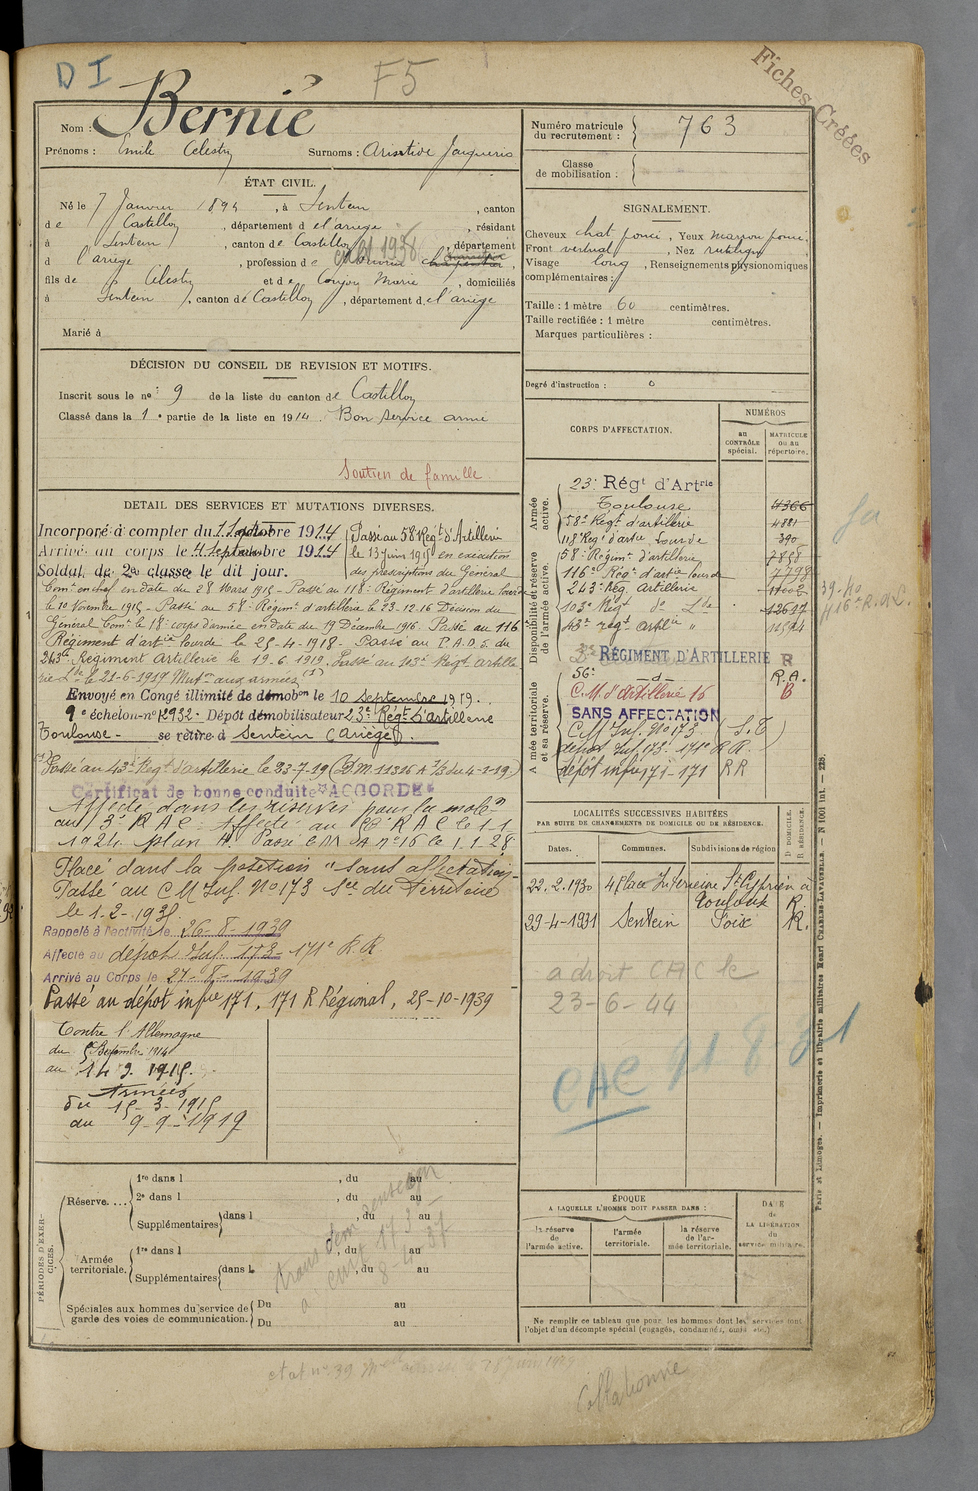 D I
F5
Fiches Créées
Nom : Bernié
Prénoms : Emile Célestin Surnoms :
Numéro matricule du recrutement : 763
Classe de mobilisation :
ÉTAT CIVIL.
Né le 7 Janvier 1894, à Sentein, canton
de Castillon, département de l'ariège, résidant
à Sentein, canton de Castillon, département
d l'ariège, profession de
fils de Célestin et de Marie, domiciliés
à Sentein, canton de Castillon, département de l'ariège
Marié à
SIGNALEMENT.
Cheveux chat foncé, Yeux marron foncé,
Front vertical, Nez rectiligne
Visage long, Renseignements physionomiques
complémentaires :
Taille : 1 mètre 60 centimètres.
Taille rectifiée : 1 mètre centimètres.
Marques particulières :
Degré d'instruction :
DÉCISION DU CONSEIL DE REVISION ET MOTIFS.
Inscrit sous le n° 9 de la liste du canton de Castillon
Classé dans la 1e partie de la liste en 1914. Bon service armé
Soutien de famille
DÉTAIL DES SERVICES ET MUTATIONS DIVERSES.
Incorporé à compter du 1914
Arrivé au corps le 1914
Soldat de 2e classe le dit jour.
Passé au 58e Régt d'Artillerie
le 13 juin 1915 en exécution
des prescriptions du Général
Comt en chef en date du 28 Mars 1915 - Passé au 118e Régiment d'artillerie lourde
le 10 Novembre 1915 - Passé au 58e Régimt d'artillerie le 23.12.16 Décision du
Général Comt le 18e corps d'armée en date du 19 Décembre 1916. Passé au 116
Régiment d'artie lourde le 25-4-1918 - Passé au P.A.D.S. du
243e Régiment Artillerie le 19-6-1919. Passé au 103e Régt artille
rie Lde le 21-6-1919 Muton aux armées (1)
Envoyé en Congé illimité de démobon le 10 Septembre 1919.
9e échelon n° 2932 - Dépôt démobilisateur 23e Régt d'artillerie
Toulouse - se retire à Sentein (Ariège).
(1) Passé au 43e Régt d'artillerie le 23-7-19 (D.M. 11326 A 1/3 du 4-2-19)
Certificat de bonne conduite "ACCORDÉ"
Affecté dans les réserves pour la mobon
au 3e RAC - Affecté au RAC le 1.1
1924 plan A. Passé CM A n° 16 le 1.1.28
Placé dans la position "sans affectation"
Passé au CM Inf. N° 173 Sce du Territoire
le 1-2-1935
Rappelé à l'activité le 26-8-1939
Affecté au dépôt Inf. 173 - 171e R.R
Arrivé au Corps le 27-8-1939
Passé au dépôt infrie 171, 171 R Régional, 25-10-1939
Contre l'Allemagne
du 5 Septembre 1914
au 14 3 1915.
Armées
du 15-3-1915
au 9-9-1919
CORPS D'AFFECTATION.
NUMÉROS
au CONTRÔLE spécial.
MATRICULE ou au répertoire.
Armée active.
Disponibilité et réserve de l'armée active.
Armée territoriale et sa réserve.
23e Régt d'Artrie
Toulouse 4366
58e Regt d'artillerie 4881
118e Régt d'artie Lourde 390
58e Régimt d'artillerie 7858
116e Régt d'artie lourde 7798
243e Rég. Artillerie 11002
103e Régt do Lde 12617
43e régt artlie " 11594
RÉGIMENT D'ARTILLERIE R
56e - d - R.A.
C.M. d'Artillerie 16 B
SANS AFFECTATION
C.M. Inf. N° 173 (S.T)
dépôt Inf. 173. 171e R.R.
dépôt infrie 171 - 171 RR
LOCALITÉS SUCCESSIVES HABITÉES
PAR SUITE DE CHANGEMENTS DE DOMICILE OU DE RÉSIDENCE.
Dates. Communes. Subdivisions de région D DOMICILE. R RÉSIDENCE.
22.2.1930 4 Place Intérieure St Cyprien à Toulouse R.
29-4-1931 Sentein Foix R.
a droit CAC le
23-6-44
CAC 21 8-31
PÉRIODES D'EXERCICES.
Réserve....
1re dans l , du au
2e dans l , du au
Supplémentaires dans l , du au
Armée territoriale.
1re dans l , du au
Supplémentaires dans l , du au
Spéciales aux hommes du service de garde des voies de communication.
Du au
Du au
ÉPOQUE
A LAQUELLE L'HOMME DOIT PASSER DANS :
la réserve de l'armée active.
l'armée territoriale.
la réserve de l'armée territoriale.
DATE de LA LIBÉRATION du service militaire.
Ne remplir ce tableau que pour les hommes dont les services font
l'objet d'un décompte spécial (engagés, condamnés, omis etc.)
Paris et Limoges. — Imprimerie et librairie militaires Henri CHARLES-LAVAUZELLE. — N 1001 int. — 228.